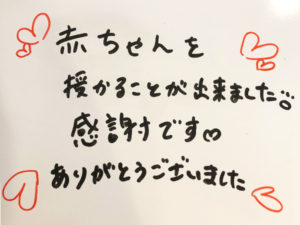 赤ちゃんを
授かることが出来ました
感謝です♡
ありがとうございました